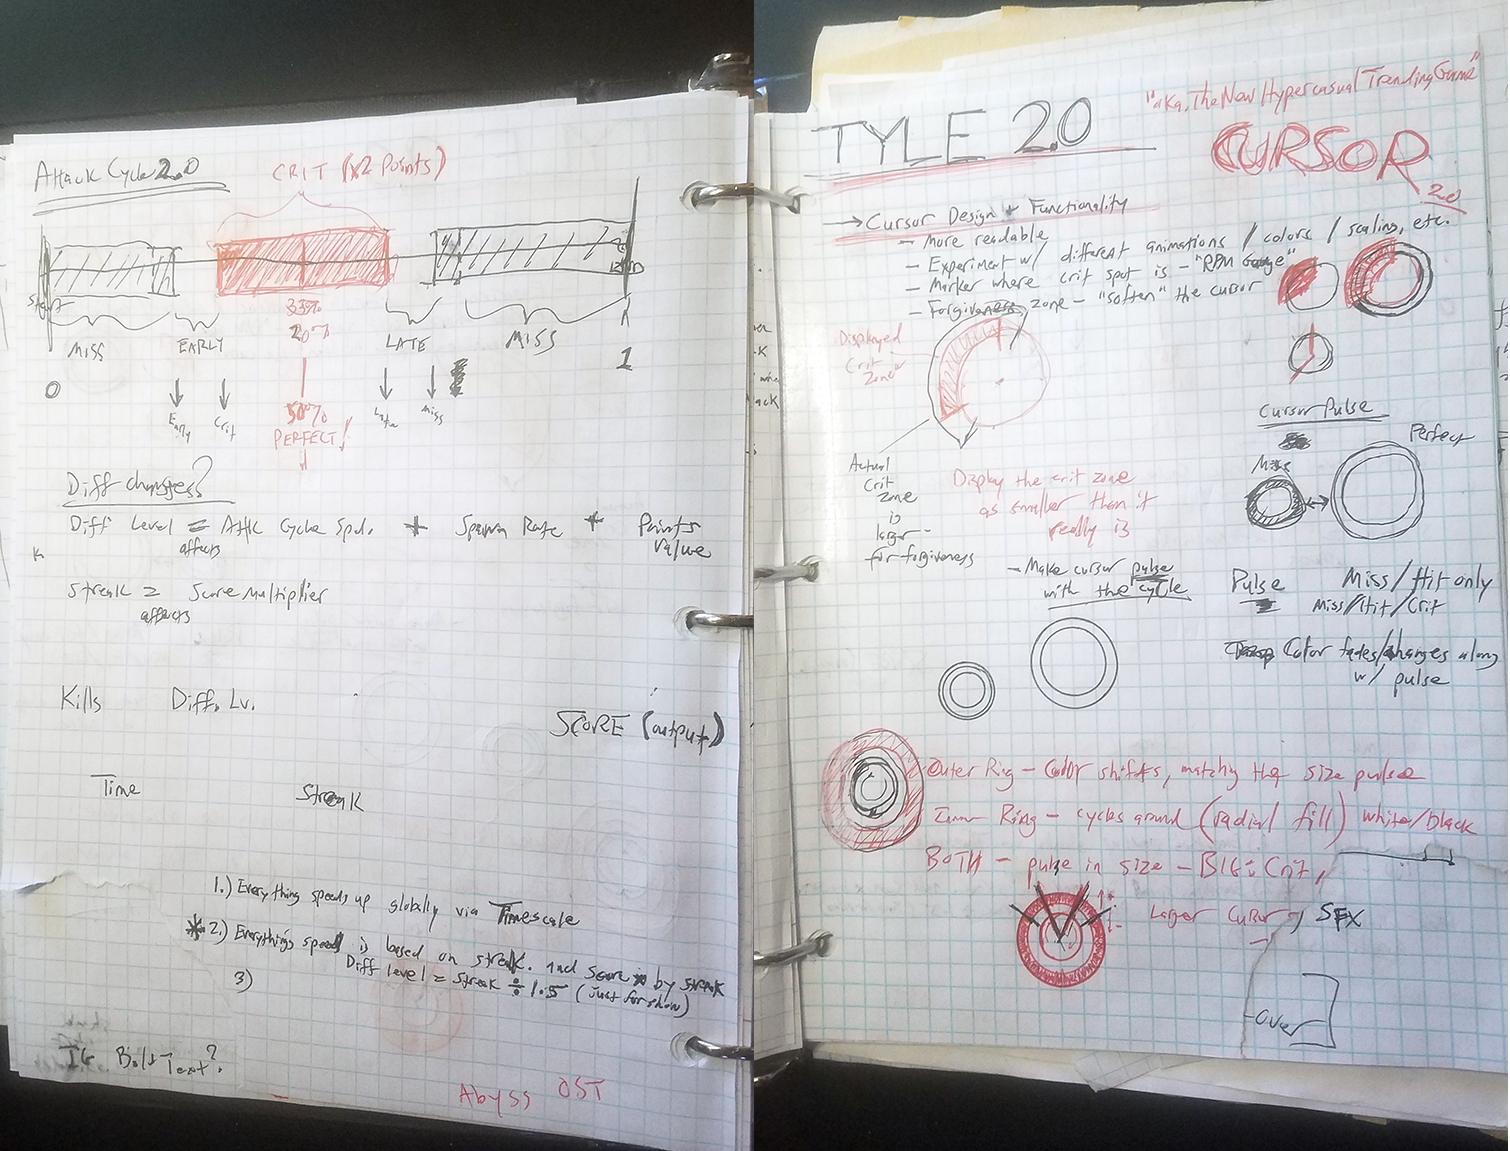 Attack Cycle 2.0
CRIT (x2 Points)
Start
33%
20%
MISS
EARLY
LATE
MISS
0
1
Early
Crit
50%
PERFECT!
Late
Miss
Diff changes?
Diff Level = Attk Cycle Spd. + Spawn Rate + Points Value
affects
Streak = Score Multiplier
affects
Kills
Diff. Lv.
SCORE (output)
Time
Streak
1.) Everything speeds up globally via Timescale
* 2.) Everything's speed is based on streak. and score x by streak
Diff level = streak ÷ 1.5 (just for show)
3)
Bold Text?
Abyss OST
"aka, The New Hypercasual Trending Game"
TYLE 2.0
CURSOR
2.0
→ Cursor Design + Functionality
- More readable
- Experiment w/ different animations / colors / scaling, etc.
- Marker where crit spot is - "RPM Gauge"
- Forgiveness zone - "soften" the cursor
Displayed
Crit
Zone
Cursor Pulse
Perfect
Miss
Actual
Crit
zone
is
larger
for forgiveness
Display the crit zone
as smaller than it
really is
- Make cursor pulse
with the cycle
Pulse
Miss/Hit only
Miss/Hit/Crit
Color fades/changes along
w/ pulse
Outer Ring - Color shifts, matching the size pulse
Inner Ring - cycles around (radial fill) white/black
BOTH - pulse in size - BIG = Crit,
Larger Cursor, SFX
Over